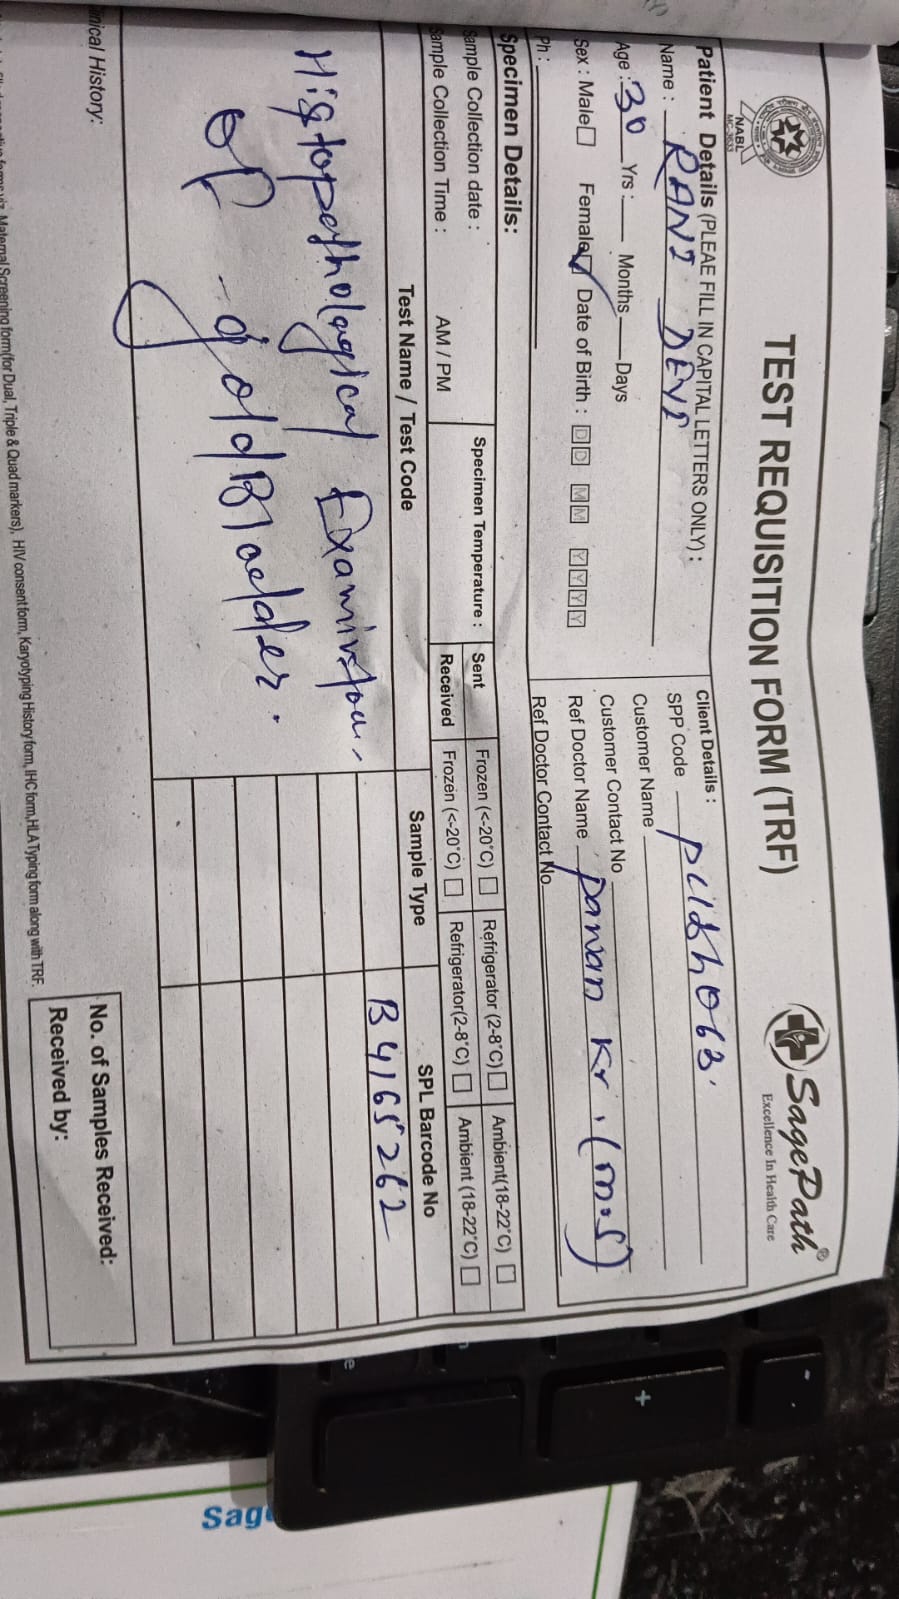 TEST REQUISITION FORM (TRF)
SagePath®
Excellence In Health Care
NABL
Patient Details (PLEAE FILL IN CAPITAL LETTERS ONLY) :
Name : RANI DEVI
Age : 30 Yrs : Months Days
Sex : Male Female Date of Birth : D D M M Y Y Y Y
Ph :
Client Details :
SPP Code
Customer Name
Customer Contact No
Ref Doctor Name Pawan Kr. (m.s)
Ref Doctor Contact No
Specimen Details:
Sample Collection date :
Sample Collection Time : AM / PM
Specimen Temperature :
Sent Frozen (<-20°C) Refrigerator (2-8°C) Ambient(18-22°C)
Received Frozen (<-20°C) Refrigerator(2-8°C) Ambient (18-22°C)
Test Name / Test Code Sample Type SPL Barcode No
Histopethological Examination B4165262
of goldBladder.
inical History:
No. of Samples Received:
Received by:
Maternal Screening form(for Dual, Triple & Quad markers), HIV consent form, Karyotyping History form, IHC form,HLA Typing form along with TRF.
Sag
+
-
e